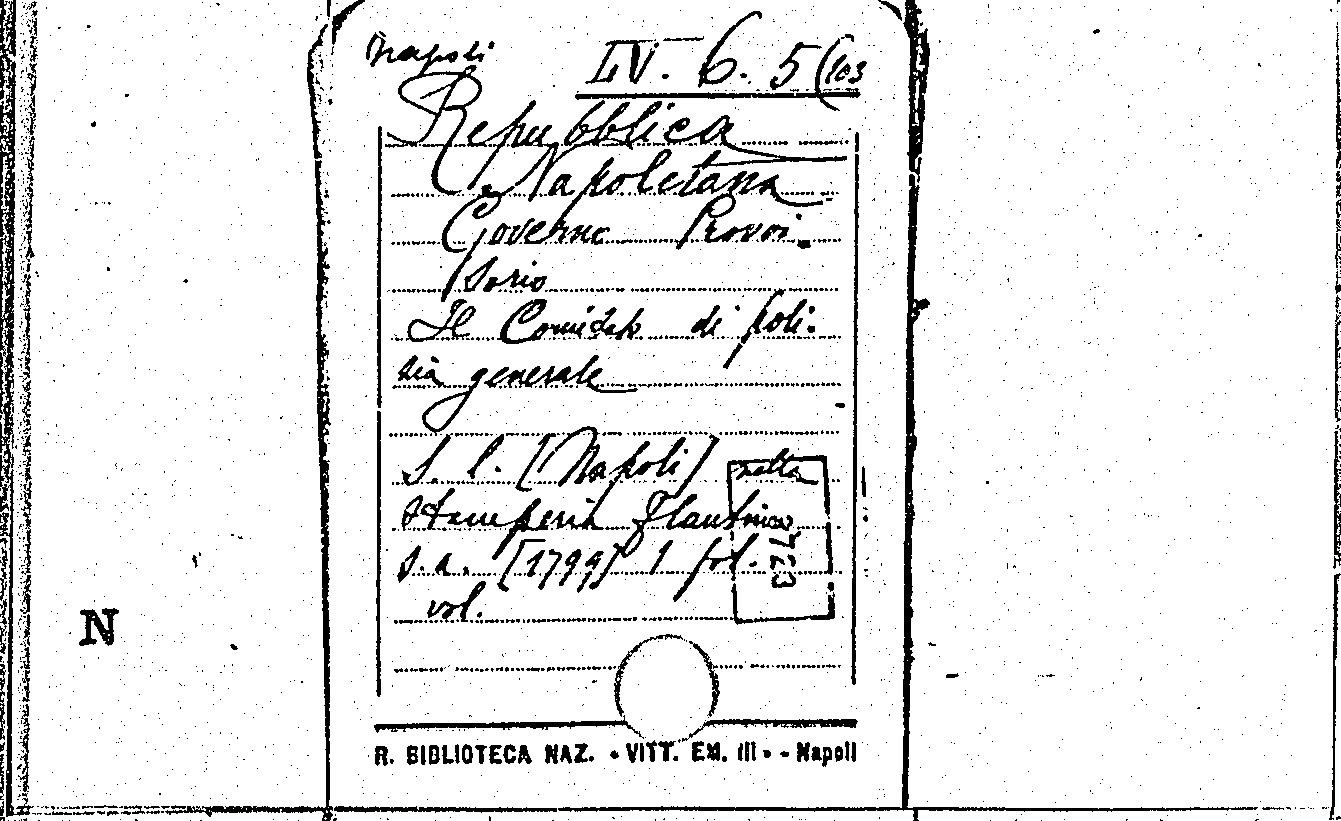 Napoli
LV. 6. 5(103
Repubblica
Napoletana
Governo Provvi-
sorio
Il Comitato di poli-
zia generale
S. l. [Napoli] nella
Stamperia Flautina
s. a. [1799] 1 fol.
vol.
2723
N
R. BIBLIOTECA NAZ. «VITT. EM. III» - Napoli